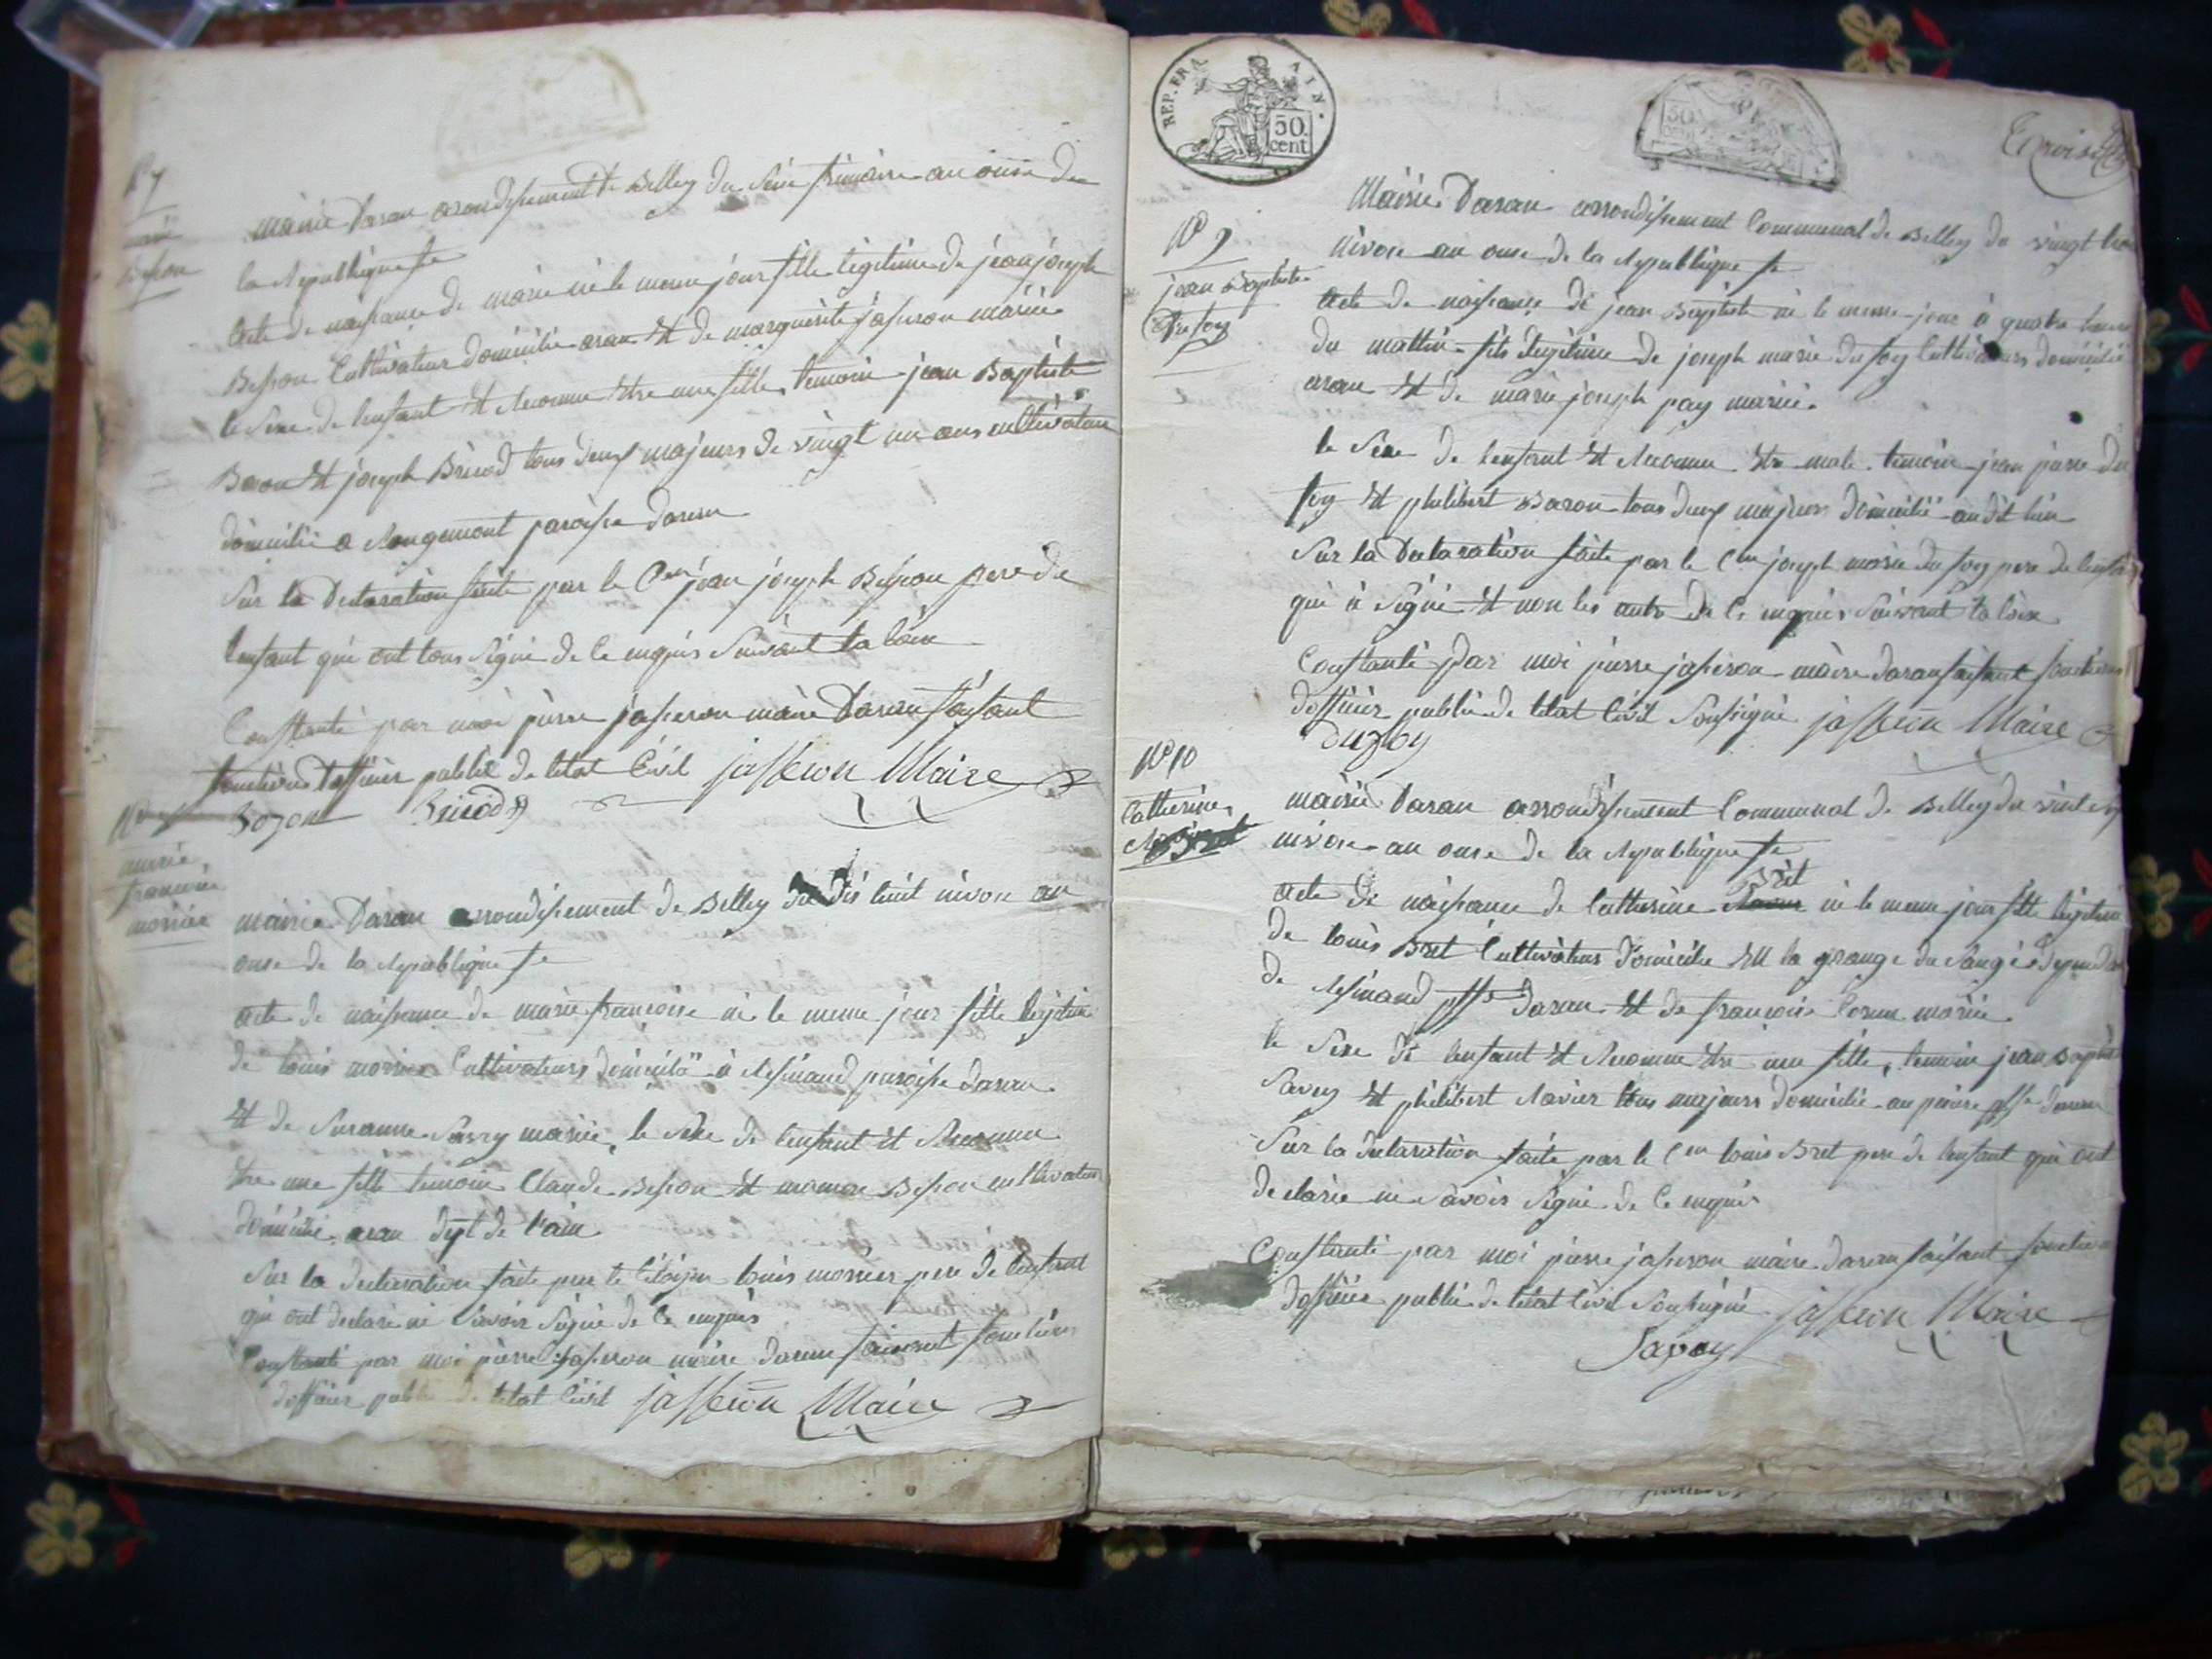 N° 7
marie
Besson
Mairie Daran arondissement de Belley du seise frimaire an onse de
la Republique fse
Acte de naissance de marie né le meme jour fille legitime de jean joseph
Besson Cultivateur domicilié aran et de marguerite jasseron mariée
le sexe de lenfant et Reconnu etre une fille, temoin jean Baptiste
Bozon et joseph Bricod tous deux majeurs de vingt un ans cultivateur
domicilié a Rougemont paroisse daran
Sur la Declaration faite par le Cen jean joseph Besson pere de
lenfant qui ont tous signé de ce enquis suivant la loix
Constaté par moi pierre jasseron maire Daran faisant
fonctions dofficier public de letat Civil jasseron Maire
Bozon Bricod
marie
francoise
mairie Daran arrondissement de Belley du dis huit nivose an
onse de la Republique fse
acte de naissance de marie francoise né le meme jour fille legitime
de louis Cultivateurs domicilié à Resinand paroisse daran
et de Suzanne Savey mariée, le sexe de lenfant et Reconnu
etre une fille temoin Claude Besson et Besson cultivateur
domicilié aran dept de l'ain
Sur la declaration faite par le Citoyen louis pere de lenfant
qui ont declaré ne savoir signé de ce enquis
Constaté par moi pierre jasseron maire daran faisant fonctions
dofficier public de letat Civil jasseron Maire
REP. FRA. AIN.
50
cent
50
cent
N° 9
jean Baptiste
Dufoy
Mairie Daran arrondissement Communal de Belley du vingt
nivose an onse de la Republique fse
Acte de naissance de jean Baptiste né le meme jour à quatre heures
du mattin fils legitime de joseph marie dufoy Cultivateurs domicilié
aran et de marie joseph pay mariée.
le sexe de lenfant et Reconnu etre male. temoin jean pierre du
foy et philibert Bozon tous deux majeurs domicilié audit lieu
Sur la Declaration faite par le Cen joseph marie du foy pere de lenfant
qui à signé et non les autre de ce enquis suivant la loix
Constaté par moi pierre jasseron maire daran faisant fonctions
dofficier public de letat Civil soussigné jasseron Maire
dufoy
N° 10
Catherine
Bret
mairie Daran arrondissement Communal de Belley du
nivose an onse de la Republique fse
Bret
acte de naissance de Catherine né le meme jour fille legitime
de louis Bret Cultivateurs domicilié et la grange du
de Resinand psse Daran et de francoise mariée
le sexe de lenfant et Reconnu etre une fille, temoin jean Baptiste
Savey et philibert Ravier tous majeurs domicilié psse daran
Sur la declaration faite par le Cen louis Bret pere de lenfant qui ont
declarée ne savoir signé de ce enquis
Constaté par moi pierre jasseron maire daran faisant fonctions
dofficier public de letat Civil soussigné jasseron Maire
Savey